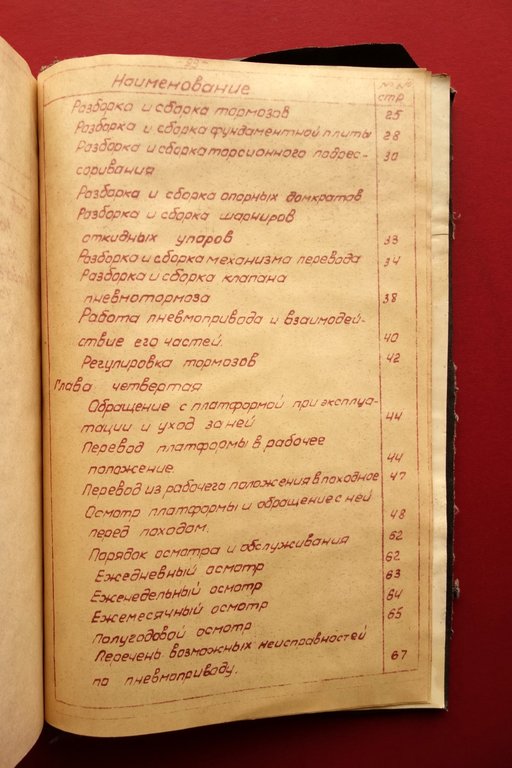 Наименование №№ стр
Разборка и сборка тормозов 25
Разборка и сборка фундаментной плиты 28
Разборка и сборка торсионного подрес- 30
соривания
Разборка и сборка опорных домкратов
Разборка и сборка шарниров
откидных упоров 33
Разборка и сборка механизма перевода 34
Разборка и сборка клапана
пневмотормоза 38
Работа пневмопривода и взаимодей-
ствие его частей. 40
Регулировка тормозов 42
Глава четвертая
Обращение с платформой при эксплуа-
тации и уход за ней 44
Перевод платформы в рабочее
положение. 44
Перевод из рабочего положения в походное 47
Осмотр платформы и обращение с ней
перед походом. 48
Порядок осмотра и обслуживания 62
Ежедневный осмотр 62
Еженедельный осмотр 63
Ежемесячный осмотр 64
Полугодовой осмотр 65
Перечень возможных неисправностей
по пневмоприводу. 67